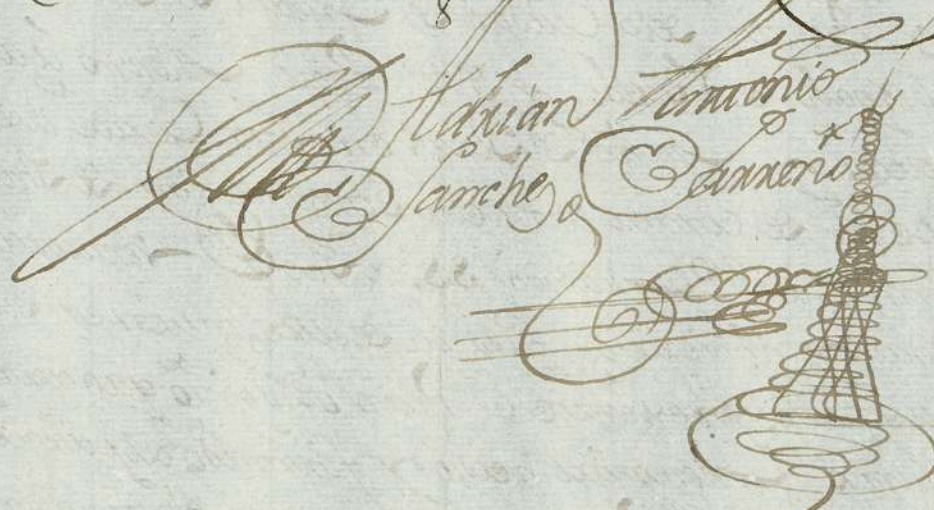 Adrian Antonio
Sanchez Carreño